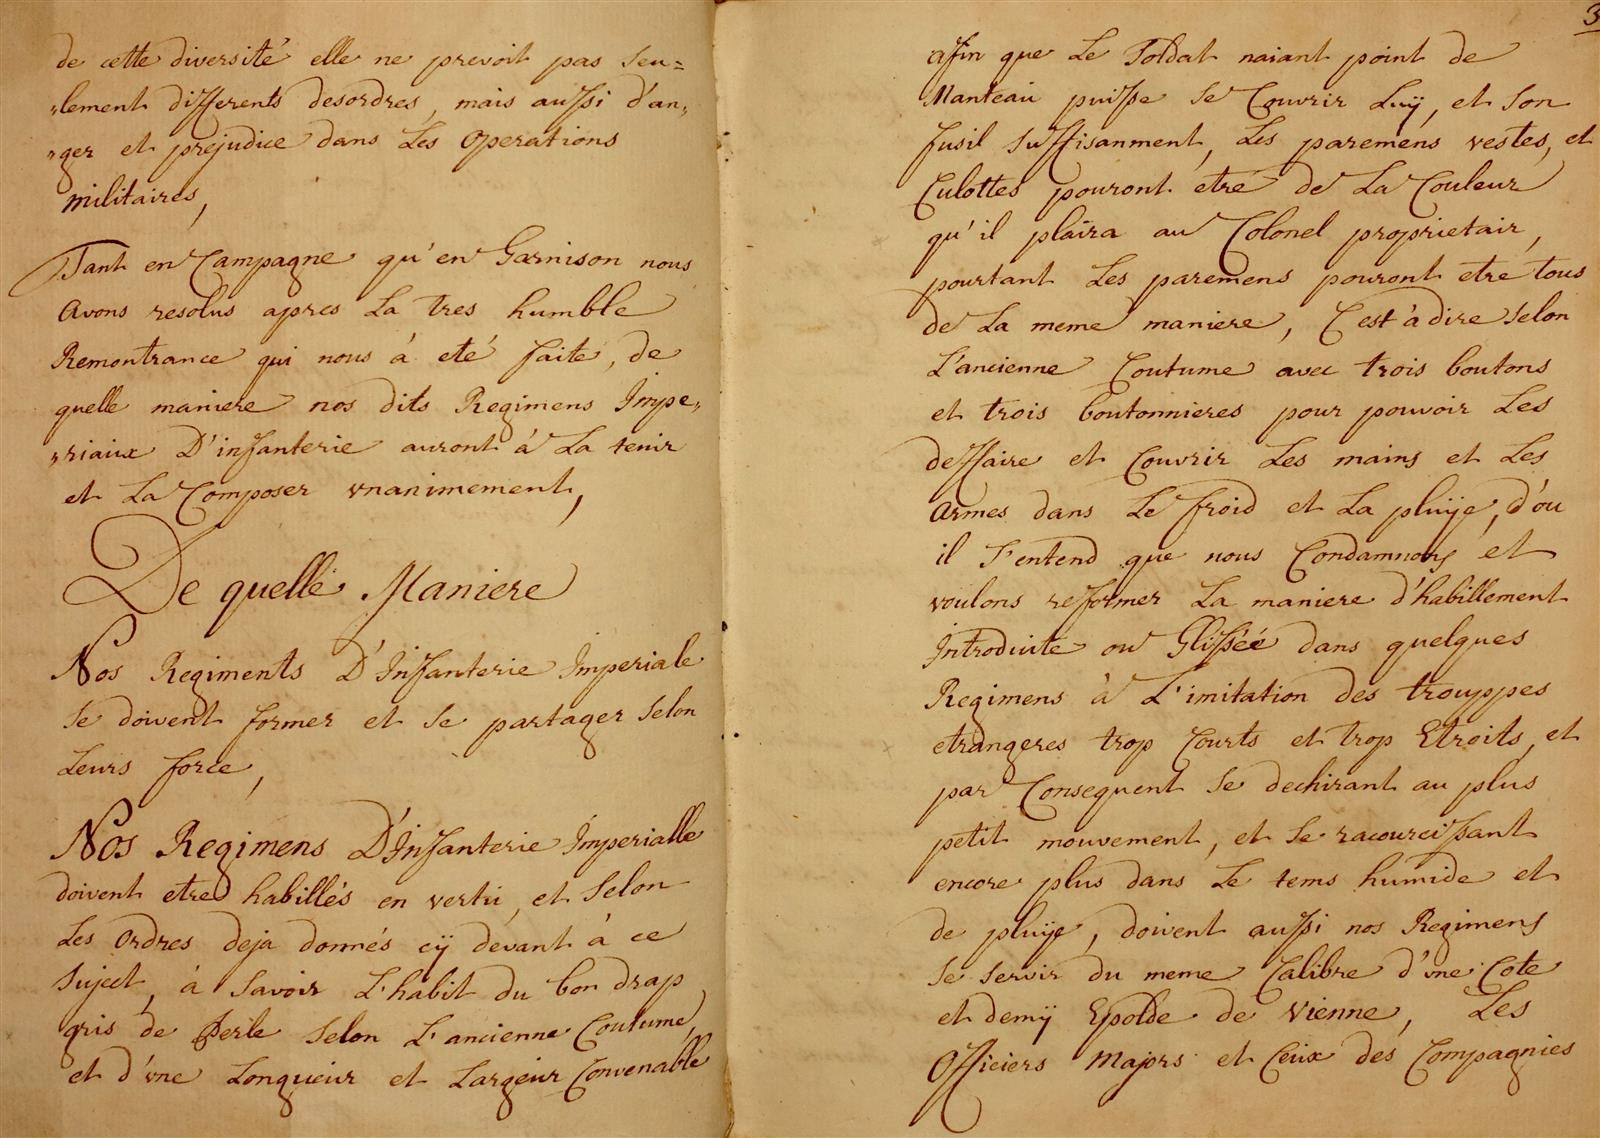 de cette diversité elle ne prevoit pas seu=
„lement differents desordres, mais aussi d'an„
„ger et prejudice dans Les operations
militaires,
Tant en Campagne qu'en Garnison nous
avons resolus apres La tres humble
Remontrance qui nous à eté faite, de
quelle maniere nos dits Regimens Impe„
„riaux D'infanterie auront à La tenir
et La Composer vnanimement,
De quelle Maniere
Nos Regiments D'Infanterie Imperiale
se doivent former et se partager selon
Leurs force,
Nos Regimens D'Infanterie Imperialle
doivent etre habillés en vertu, et selon
Les ordres deja donnés cÿ devant à ce
suject, à savoir L'habit du bon drap
gris de Perle selon L'ancienne Coutume,
et d'vne Longueur et Largeur Convenable
3
afin que Le Soldat naiant point de
Manteau puisse se Couvrir Luÿ, et son
fusil suffisanment, Les paremens vestes, et
Culottes pouront etre de La Couleur
qu'il plaira au Colonel proprietair,
pourtant Les paremens pouront etre tous
de La meme maniere, C'est à dire selon
L'ancienne Coutume avec trois boutons
et trois boutonnieres pour pouvoir Les
deffaire et Couvrir Les mains et Les
armes dans Le froid et La pluÿe, d'ou
il s'entend que nous Condamnons et
voulons reformer La maniere d'habillement
Introduite ou Glissée dans quelques
Regimens à L'imitation des trouppes
etrangeres trop Courts et trop Etroits, et
par Consequent se dechirant au plus
petit mouvement, et se racourcissant
encore plus dans Le tems humide et
de pluÿe, doivent aussi nos Regimens
se servir du meme Calibre d'vne Cote
et demÿ Epolde de Vienne, Les
Officiers Majors et Ceux des Compagnies